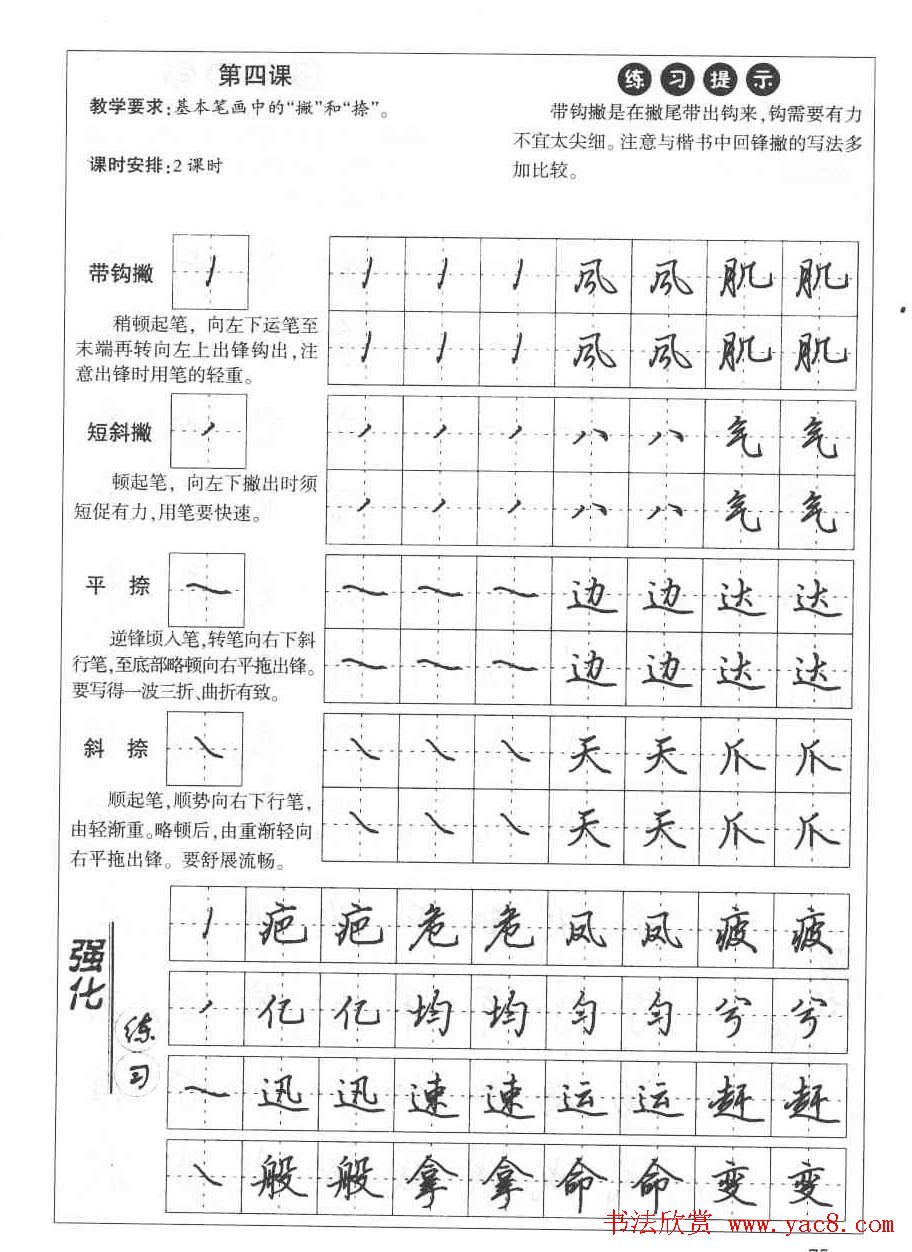 第四课
教学要求:基本笔画中的“撇”和“捺”。
课时安排:2课时
练习提示
带钩撇是在撇尾带出钩来,钩需要有力
不宜太尖细。注意与楷书中回锋撇的写法多
加比较。
带钩撇
稍顿起笔，向左下运笔至
末端再转向左上出锋钩出,注
意出锋时用笔的轻重。
丿 丿 丿 凨 凨 肌 肌
丿 丿 丿 凨 凨 肌 肌
短斜撇
顿起笔，向左下撇出时须
短促有力,用笔要快速。
丿 丿 丿 八 八 气 气
丿 丿 丿 八 八 气 气
平 捺
逆锋顷入笔,转笔向右下斜
行笔,至底部略顿向右平拖出锋。
要写得一波三折、曲折有致。
㇏ ㇏ ㇏ 边 边 达 达
㇏ ㇏ ㇏ 边 边 达 达
斜 捺
顺起笔,顺势向右下行笔,
由轻渐重。略顿后,由重渐轻向
右平拖出锋。要舒展流畅。
㇏ ㇏ ㇏ 天 天 爪 爪
㇏ ㇏ ㇏ 天 天 爪 爪
强化
练习
丿 疤 疤 危 危 凤 凤 疲 疲
丿 亿 亿 均 均 匀 匀 兮 兮
㇏ 迅 迅 速 速 运 运 赶 赶
㇏ 般 般 拿 拿 命 命 变 变
书法欣赏 www.yac8.com